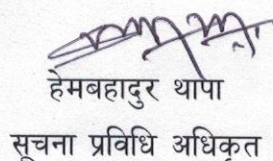 हेमबहादुर थापा
सूचना प्रविधि अधिकृत